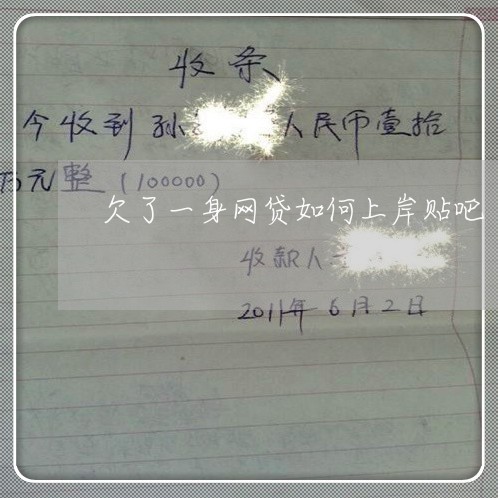 收条
今收到孙 人民币壹拾
万元整（100000）
欠了一身网贷如何上岸贴吧
收款人
2011年6月2日